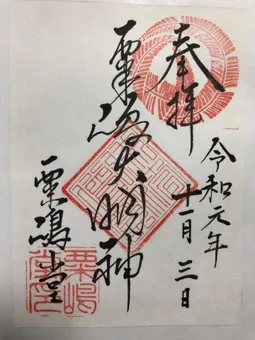 奉拝
令和元年
十一月三日
粟嶋大明神
粟嶋堂
粟嶋